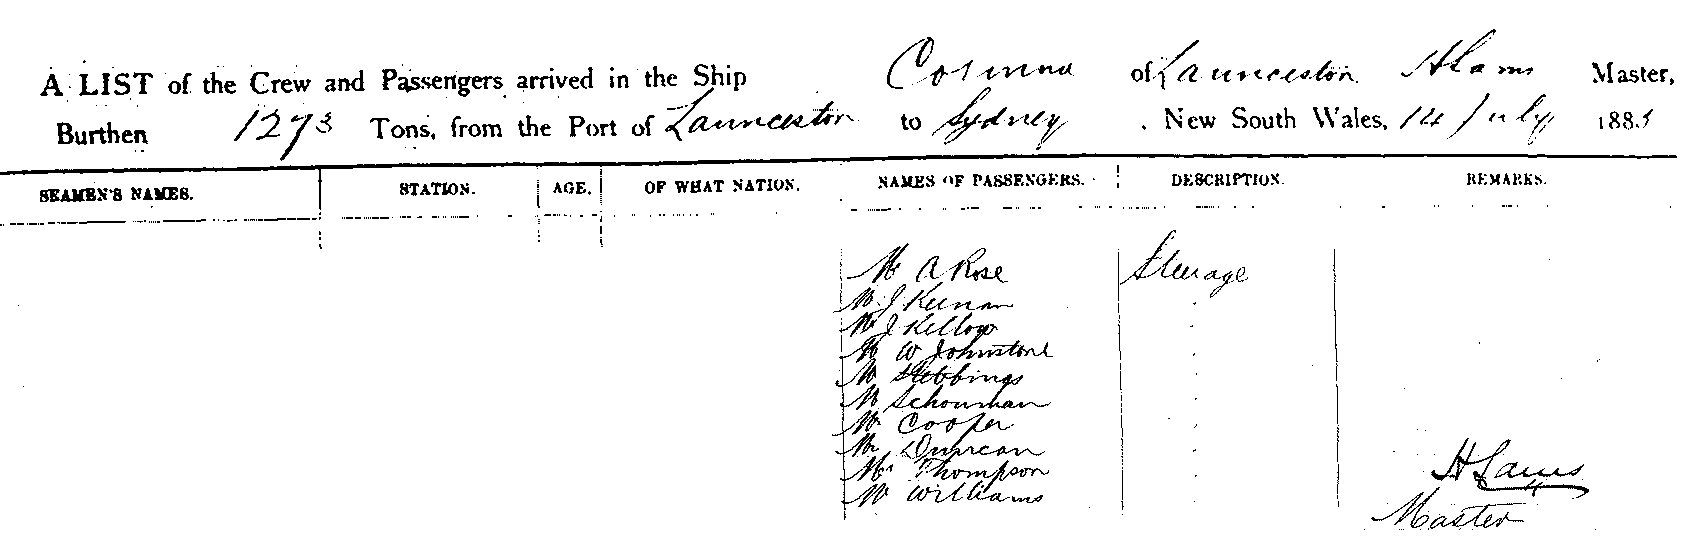 A LIST of the Crew and Passengers arrived in the Ship Corinna of Launceston H Lams Master,
Burthen 1273 Tons, from the Port of Launceston to Sydney, New South Wales, 14 July 1885
SEAMEN'S NAMES. STATION. AGE. OF WHAT NATION. NAMES OF PASSENGERS. DESCRIPTION. REMARKS.
Mr A Rose Steerage
Mr J Keenan
Mr J Kellow
Mr W Johnstone
Mr Stebbings
Mr Schouman
Mr Cooper
Mr Duncan
Mr Thompson
Mr Williams
H Lams
Master